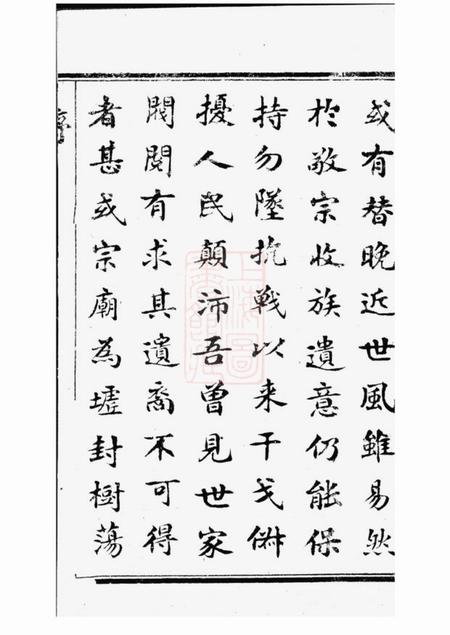 或有替晚近世風雖易然
於敬宗收族遺意仍能保
持勿墜抗戰以来干戈俶
擾人民顛沛吾曾見世家
閥閱有求其遺裔不可得
者甚或宗廟為墟封樹蕩